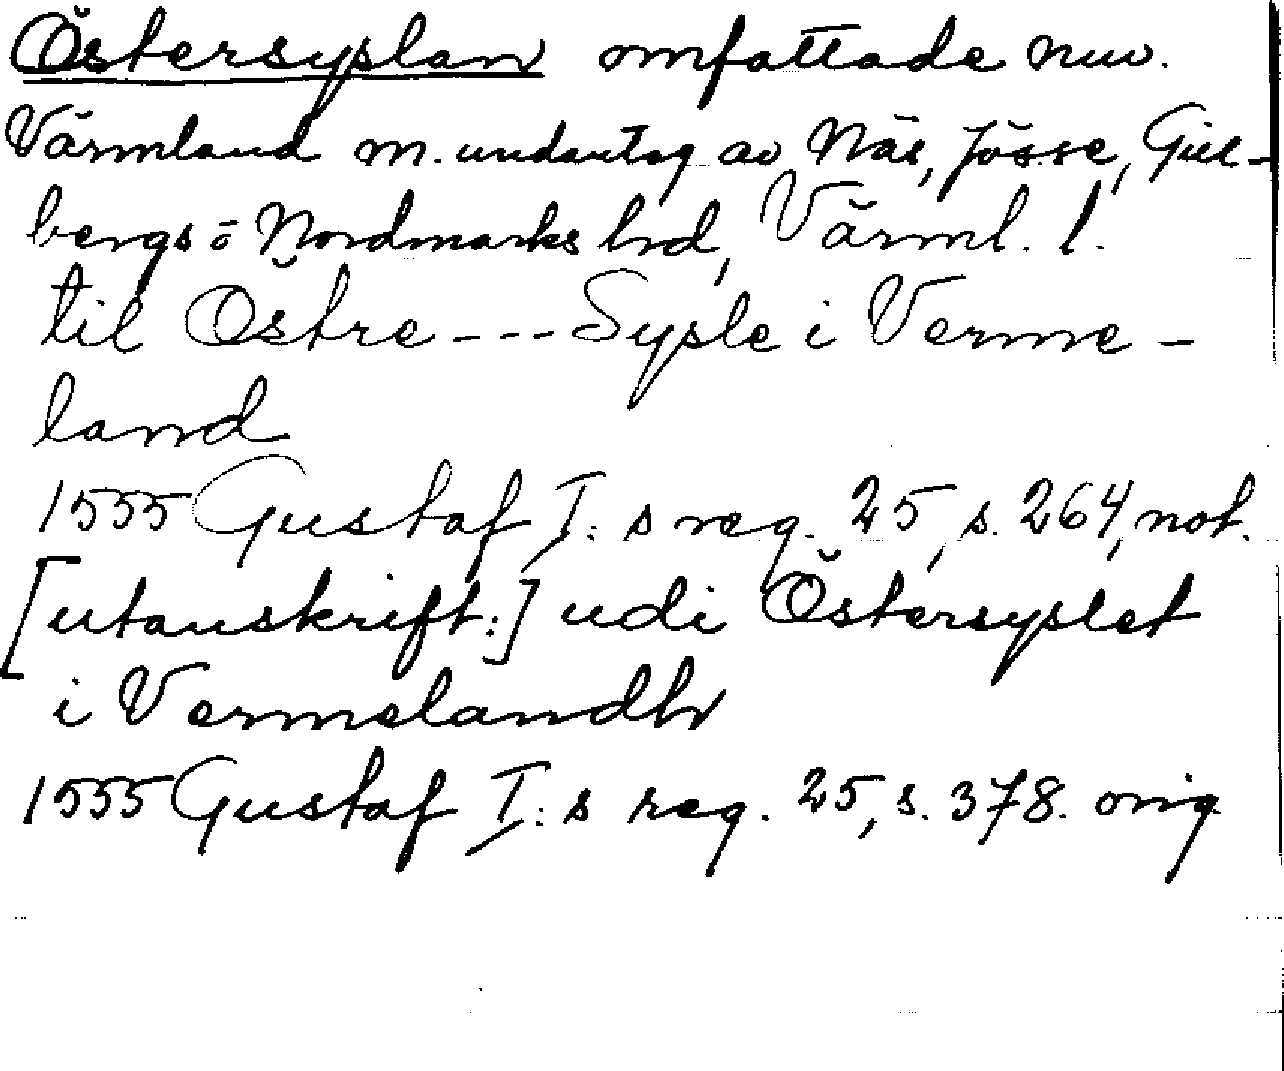 Östersyslan omfattade nuv.
Värmland m. undantag av Näs, Jösse, Gill-
bergs o Nordmarks hrd, Värml. l.
til Östre --- Sysle i Verme-
land
1555 Gustaf I:s reg. 25, s. 264, not.
[utanskrift:] udi Östersyslet
i Vermelandh
1555 Gustaf I:s reg. 25, s. 378. orig